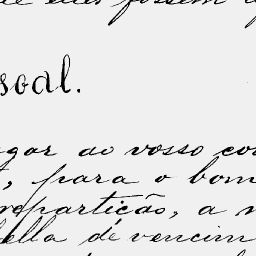 elles fossem
soal.
gar ao vosso co
, para o bom
repartição, a
ella de vencim